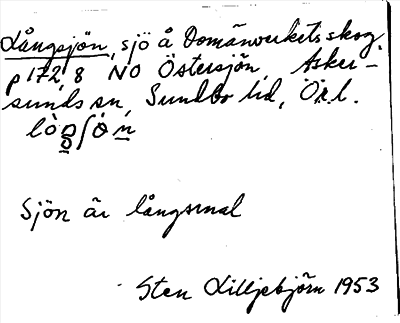 Långsjön, sjö å Domänverkets skog,
p 172,8 NO Östersjön, Asker-
sunds sn, Sundbo hd, Ör.l.
Sjön är långsmal
Sten Lilljebjörn 1953